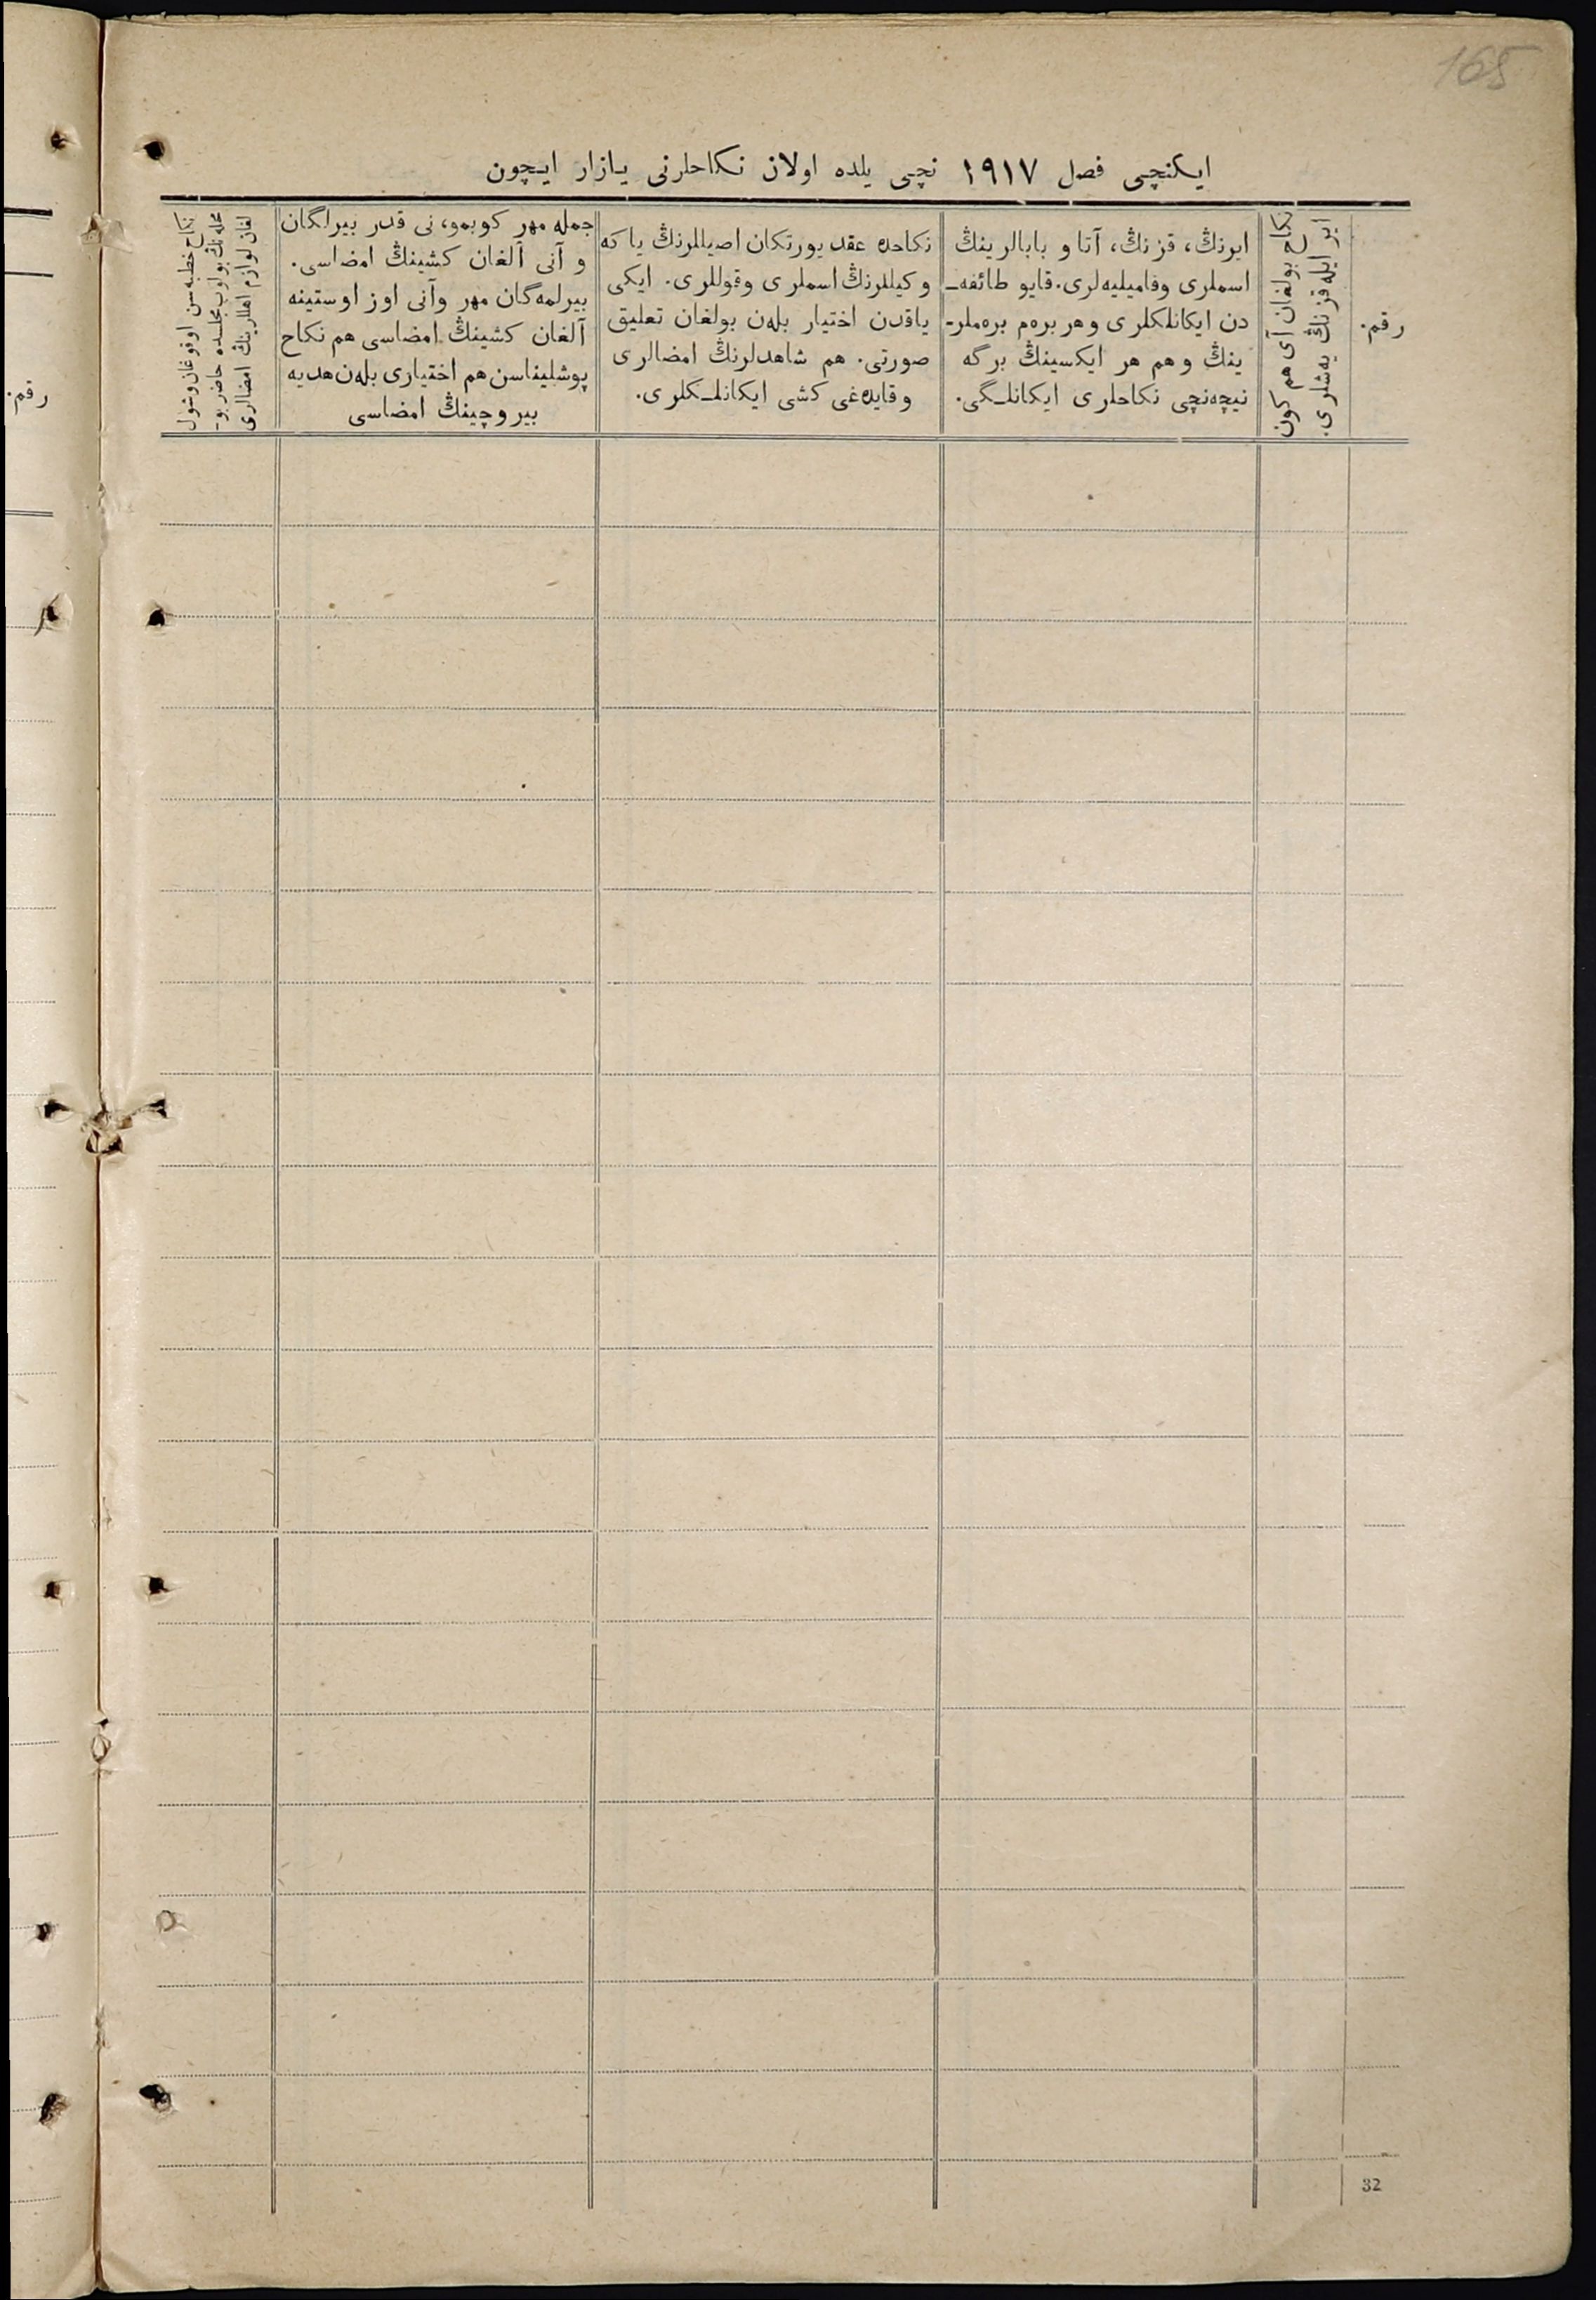 165
ایکنچی فصل ۱۹۱۷ نچی یلده اولان نکاحلرنی یازار ایچون
رقم.
نکاح بولغان آی هم کون
ایر ایله قزنڭ یه‌شلری.
ایرنڭ، قزنڭ، آتا و بابالرینڭ
اسملری وفامیلیه‌لری. قایو طائفه‌ـ
دن ایکانلکلری وهر بره‌م بره‌ملرـ
ینڭ وهم هر ایکسینڭ برگه
نیچه‌نچی نکاحلری ایکانلـگی.
نکاحده عقد یورتکان اصیللرنڭ یا که
وکیللرنڭ اسملری وقوللری. ایکی
یاقدن اختیار بله‌ن بولغان تعلیق
صورتی. هم شاهدلرنڭ امضالری
وقایده‌غی کشی ایکانلـکلری.
جمله مهر کوبمو، نی قدر بیرلگان
و آنی آلغان کشینڭ امضاسی.
بیرلمه‌گان مهر وآنی اوز اوستینه
آلغان کشینڭ امضاسی هم نکاح
پوشلیناسن هم اختیاری بله‌ن هدیه
بیروچینڭ امضاسی
نکاح خطبه‌سن اوقوغان وشول
محله‌نڭ بولوب مجلسده حاضر بوـ
لغان لوازم اهللرینڭ امضالری
رقم.
32